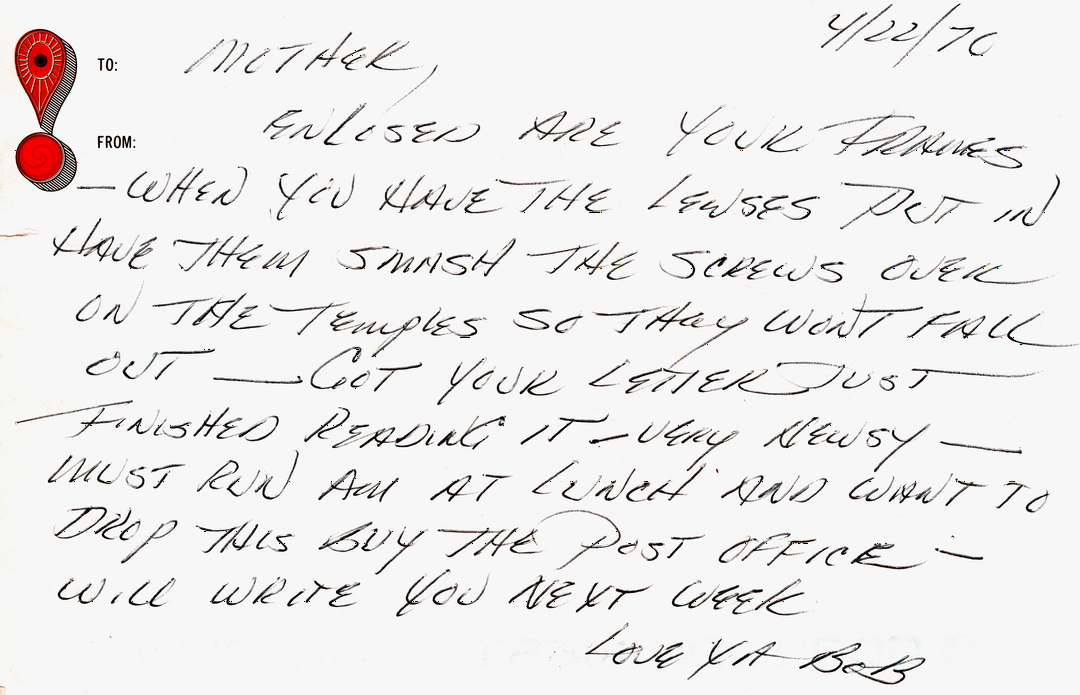 4/22/70
TO: MOTHER,
FROM:
ENLOSED ARE YOUR FRAMES
— WHEN YOU HAVE THE LENSES PUT IN
HAVE THEM SMASH THE SCREWS OVER
ON THE TEMPLES SO THEY WON'T FALL
OUT — GOT YOUR LETTER JUST
FINISHED READING IT — VERY NEWSY —
MUST RUN AM AT LUNCH AND WANT TO
DROP THIS BUY THE POST OFFICE —
WILL WRITE YOU NEXT WEEK
LOVE YA BOB